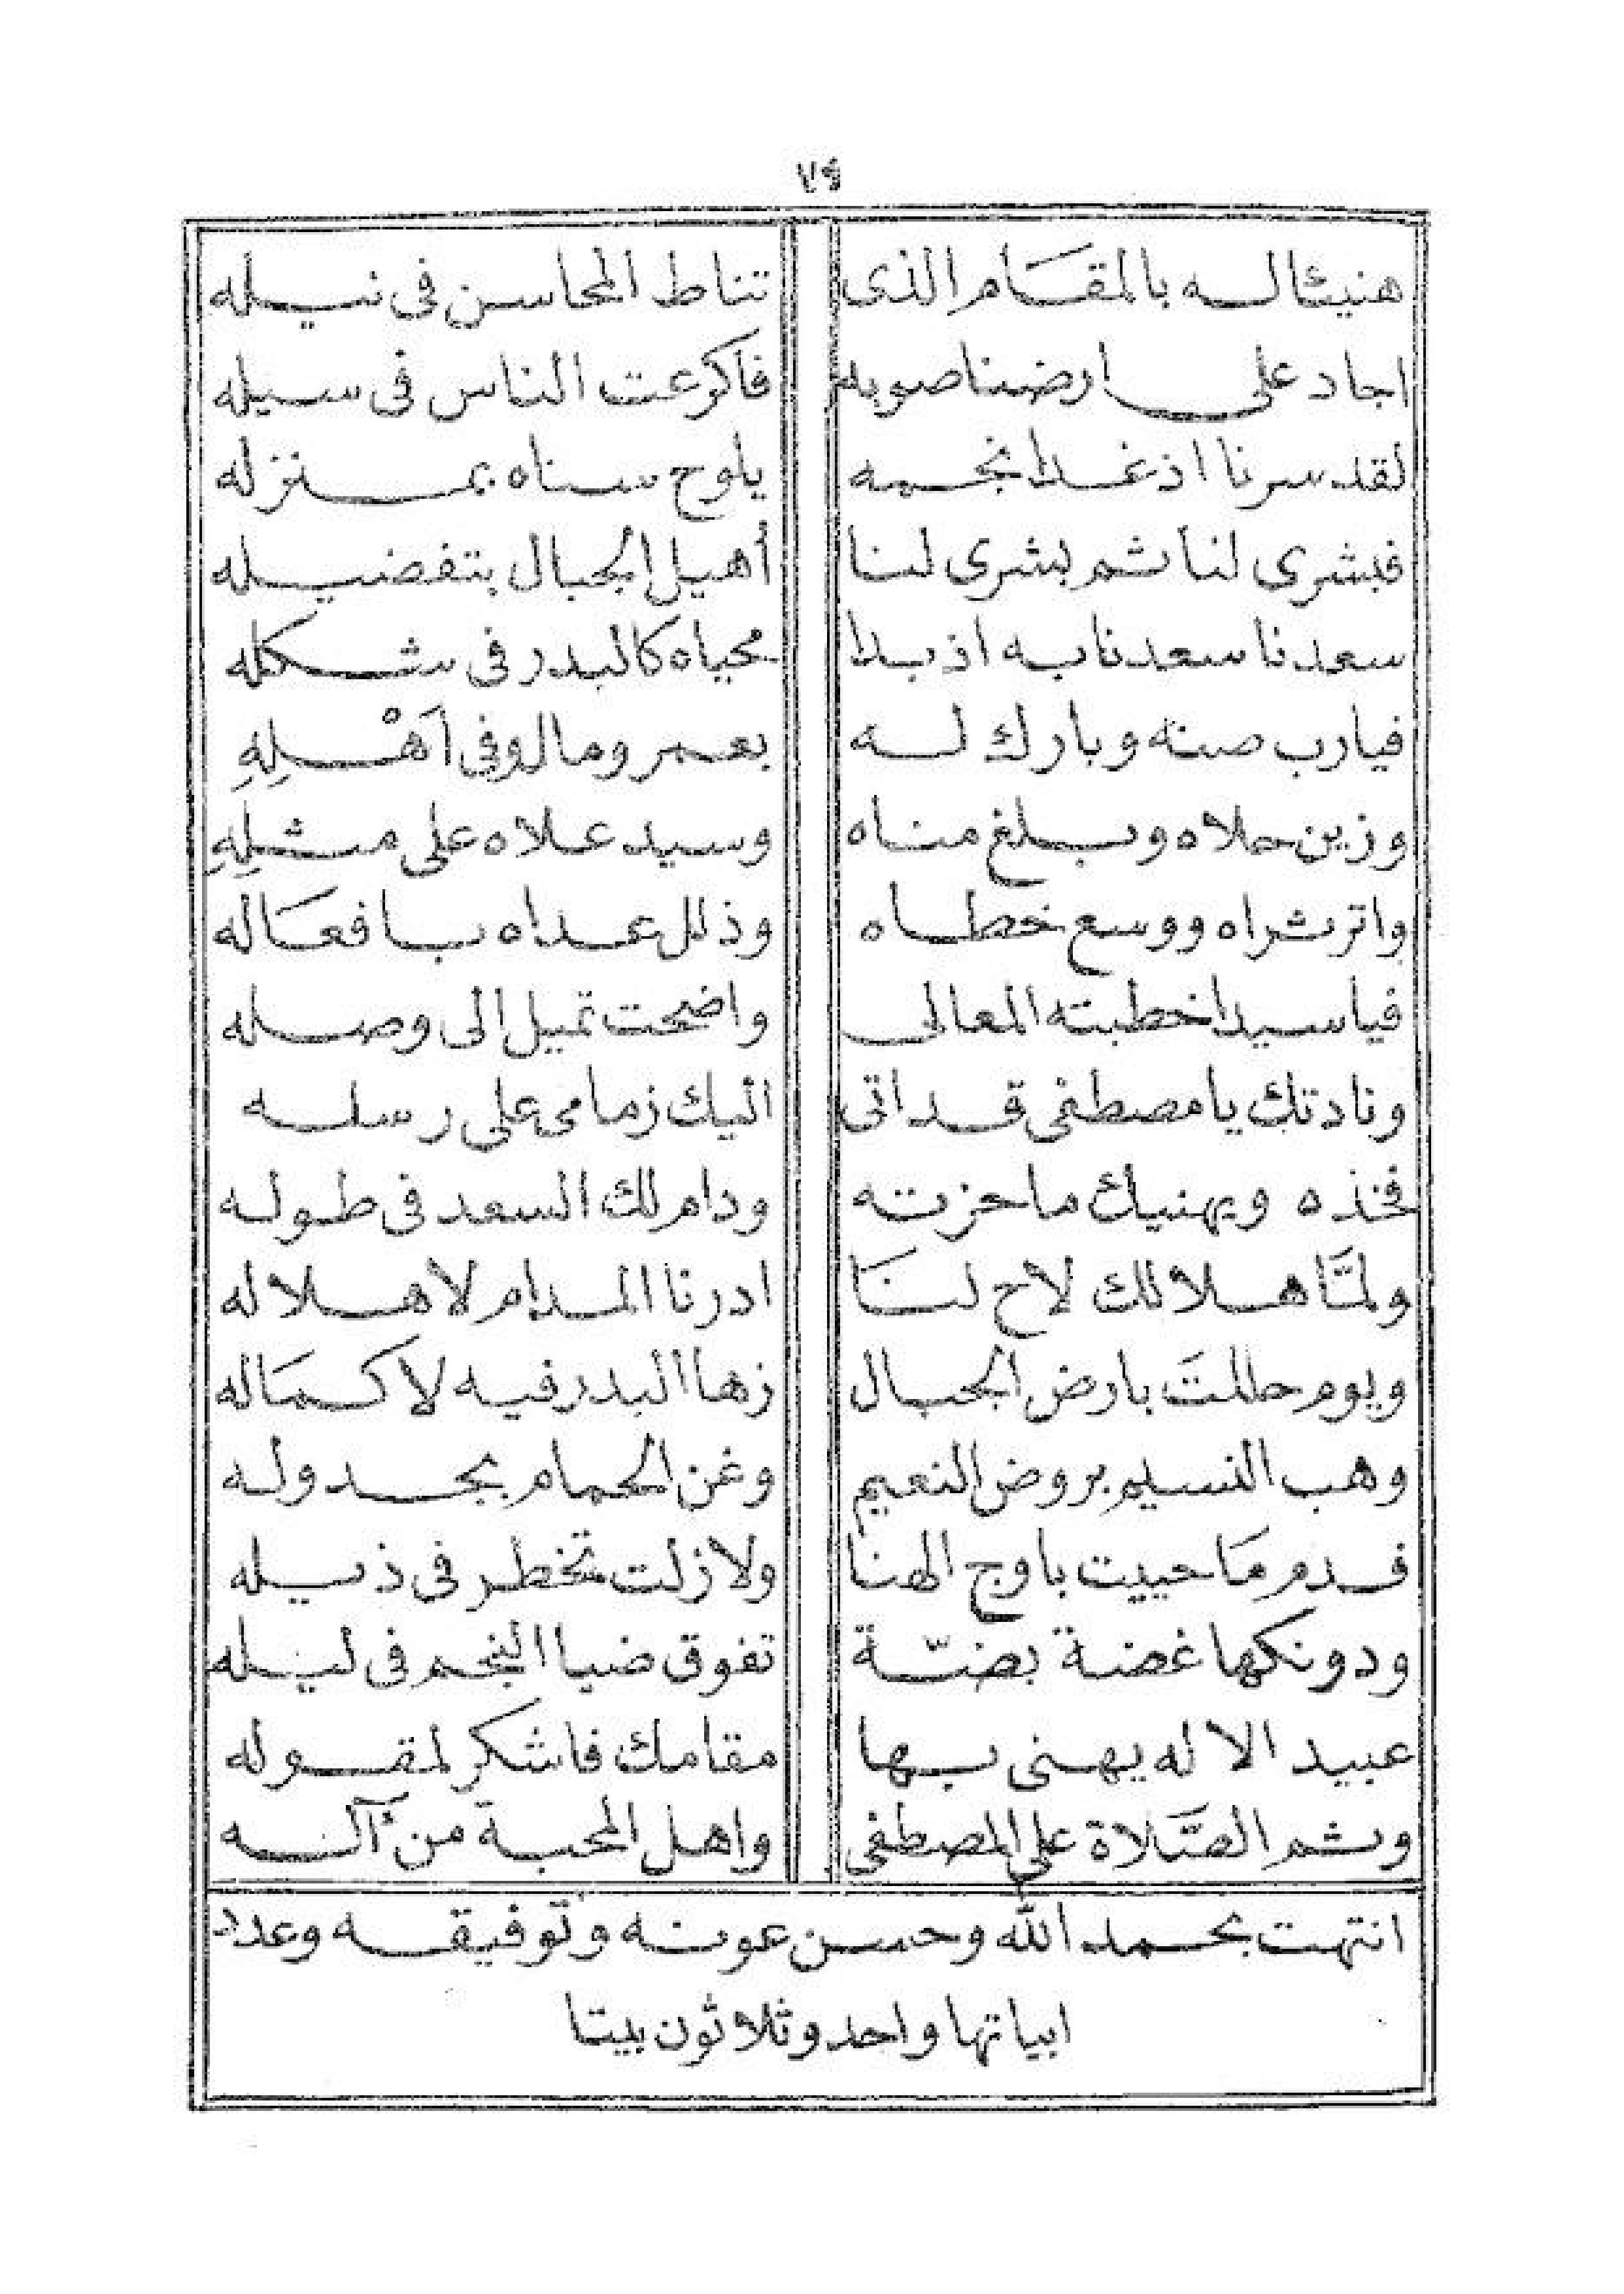 ٧٤
هنيئا له بالمقام الذى تناط المحاسن فى نيله
اجاد على ارضنا صوبه فأكرعت الناس فى سيله
لقد سرنا اذ غدا نجمه يلوح سناه بمنزله
فبشرى لنا ثم بشرى لنا أهيل الجبال بتفضيله
سعدنا سعدنا به اذ بدا محياه كالبدر فى شكله
فيارب صنه وبارك له بعمر ومال وفى اَهْلِهِ
وزين حلاه وبلغ مناه وسيد علاه على مثلِهِ
واتر ثراه ووسع خطاه وذلل عداه بافعَاله
فيا سيدا خطبته المعالى واضحت تميل الى وصله
ونادتك يا مصطفى قد اتى اليك زمامى على رسله
فخذه ويهنيك ما حزته ودام لك السعد فى طوله
ولمَّا هلالك لاح لنَا ادرنا المدام لاهلاله
ويوم حللتَ بارض الجبال زها البدر فيه لاكمَاله
وهب النسيم بروض النعيم وغن الحمام بجدوله
فدم مَا حييت باوج الهنا ولا زلت تخطر فى ذيله
ودونكها غضة بضّة تفوق ضيا النجم فى ليله
عبيد الاله يهنى بها مقامك فاشكر لمقوله
وثم الصَّلاة على المصطفى واهل المحبة من آله
انتهت بحمد الله وحسن عونه وتوفيقه وعدد
ابياتها واحد وثلاثون بيتا